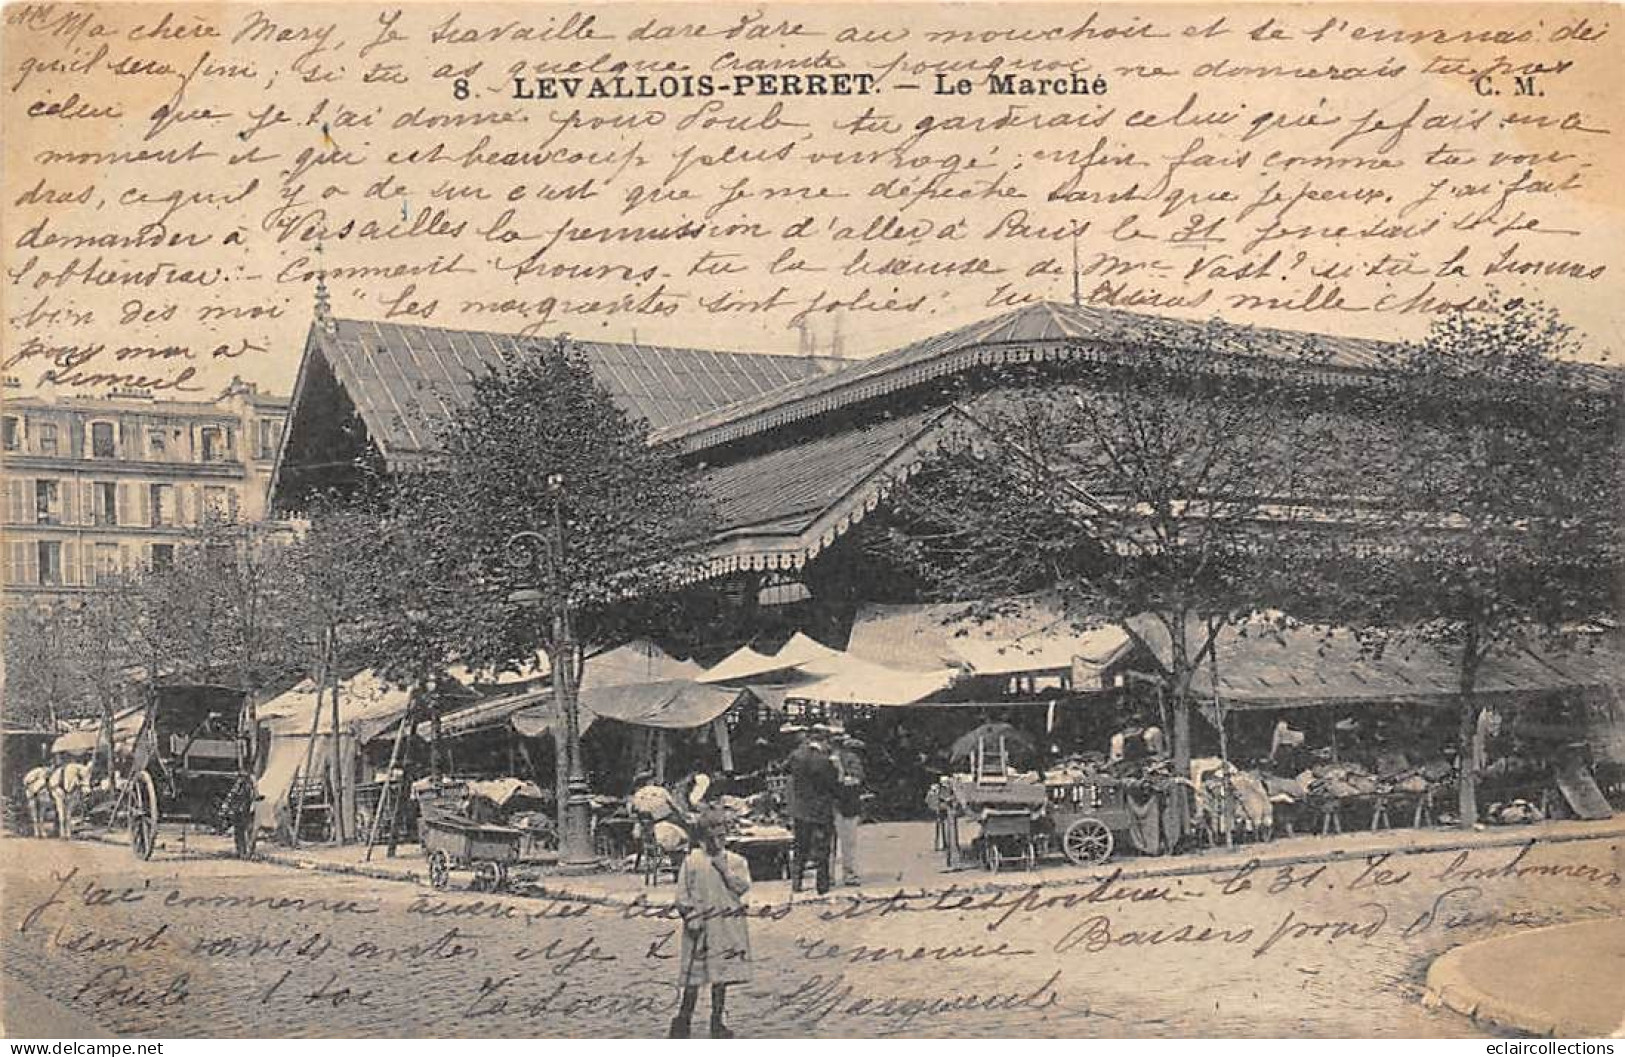 Ma chère Mary, Je travaille dare dare au mouchoir et te l'enverrai dès
qu'il sera fini; si tu as quelque crainte pourquoi ne donnerais tu pas
8. - LEVALLOIS-PERRET. - Le Marché C. M.
celui que je t'ai donné pour Poule, tu garderais celui que je fais en ce
moment et qui est beaucoup plus ouvragé; enfin fais comme tu vou-
dras, ce qu'il y a de sur c'est que je me dépêche tant que je peux. J'ai fait
demander à Versailles la permission d'aller à Paris le 31 je ne sais si je
l'obtiendrai. - Comment trouves-tu la liseuse de Mme Vast? si tu la trouves
bien dis moi "les margrantes sont jolies". Tu diras mille choses
pour moi à
Limeil
J'ai commencé aussi tes liseuses et te les porterai le 31. Tes bonbonnières
sont ravissantes et je t'en remercie Baisers pour
Poule à toi Ta Marguerite
eclaircollections
www.delcampe.net